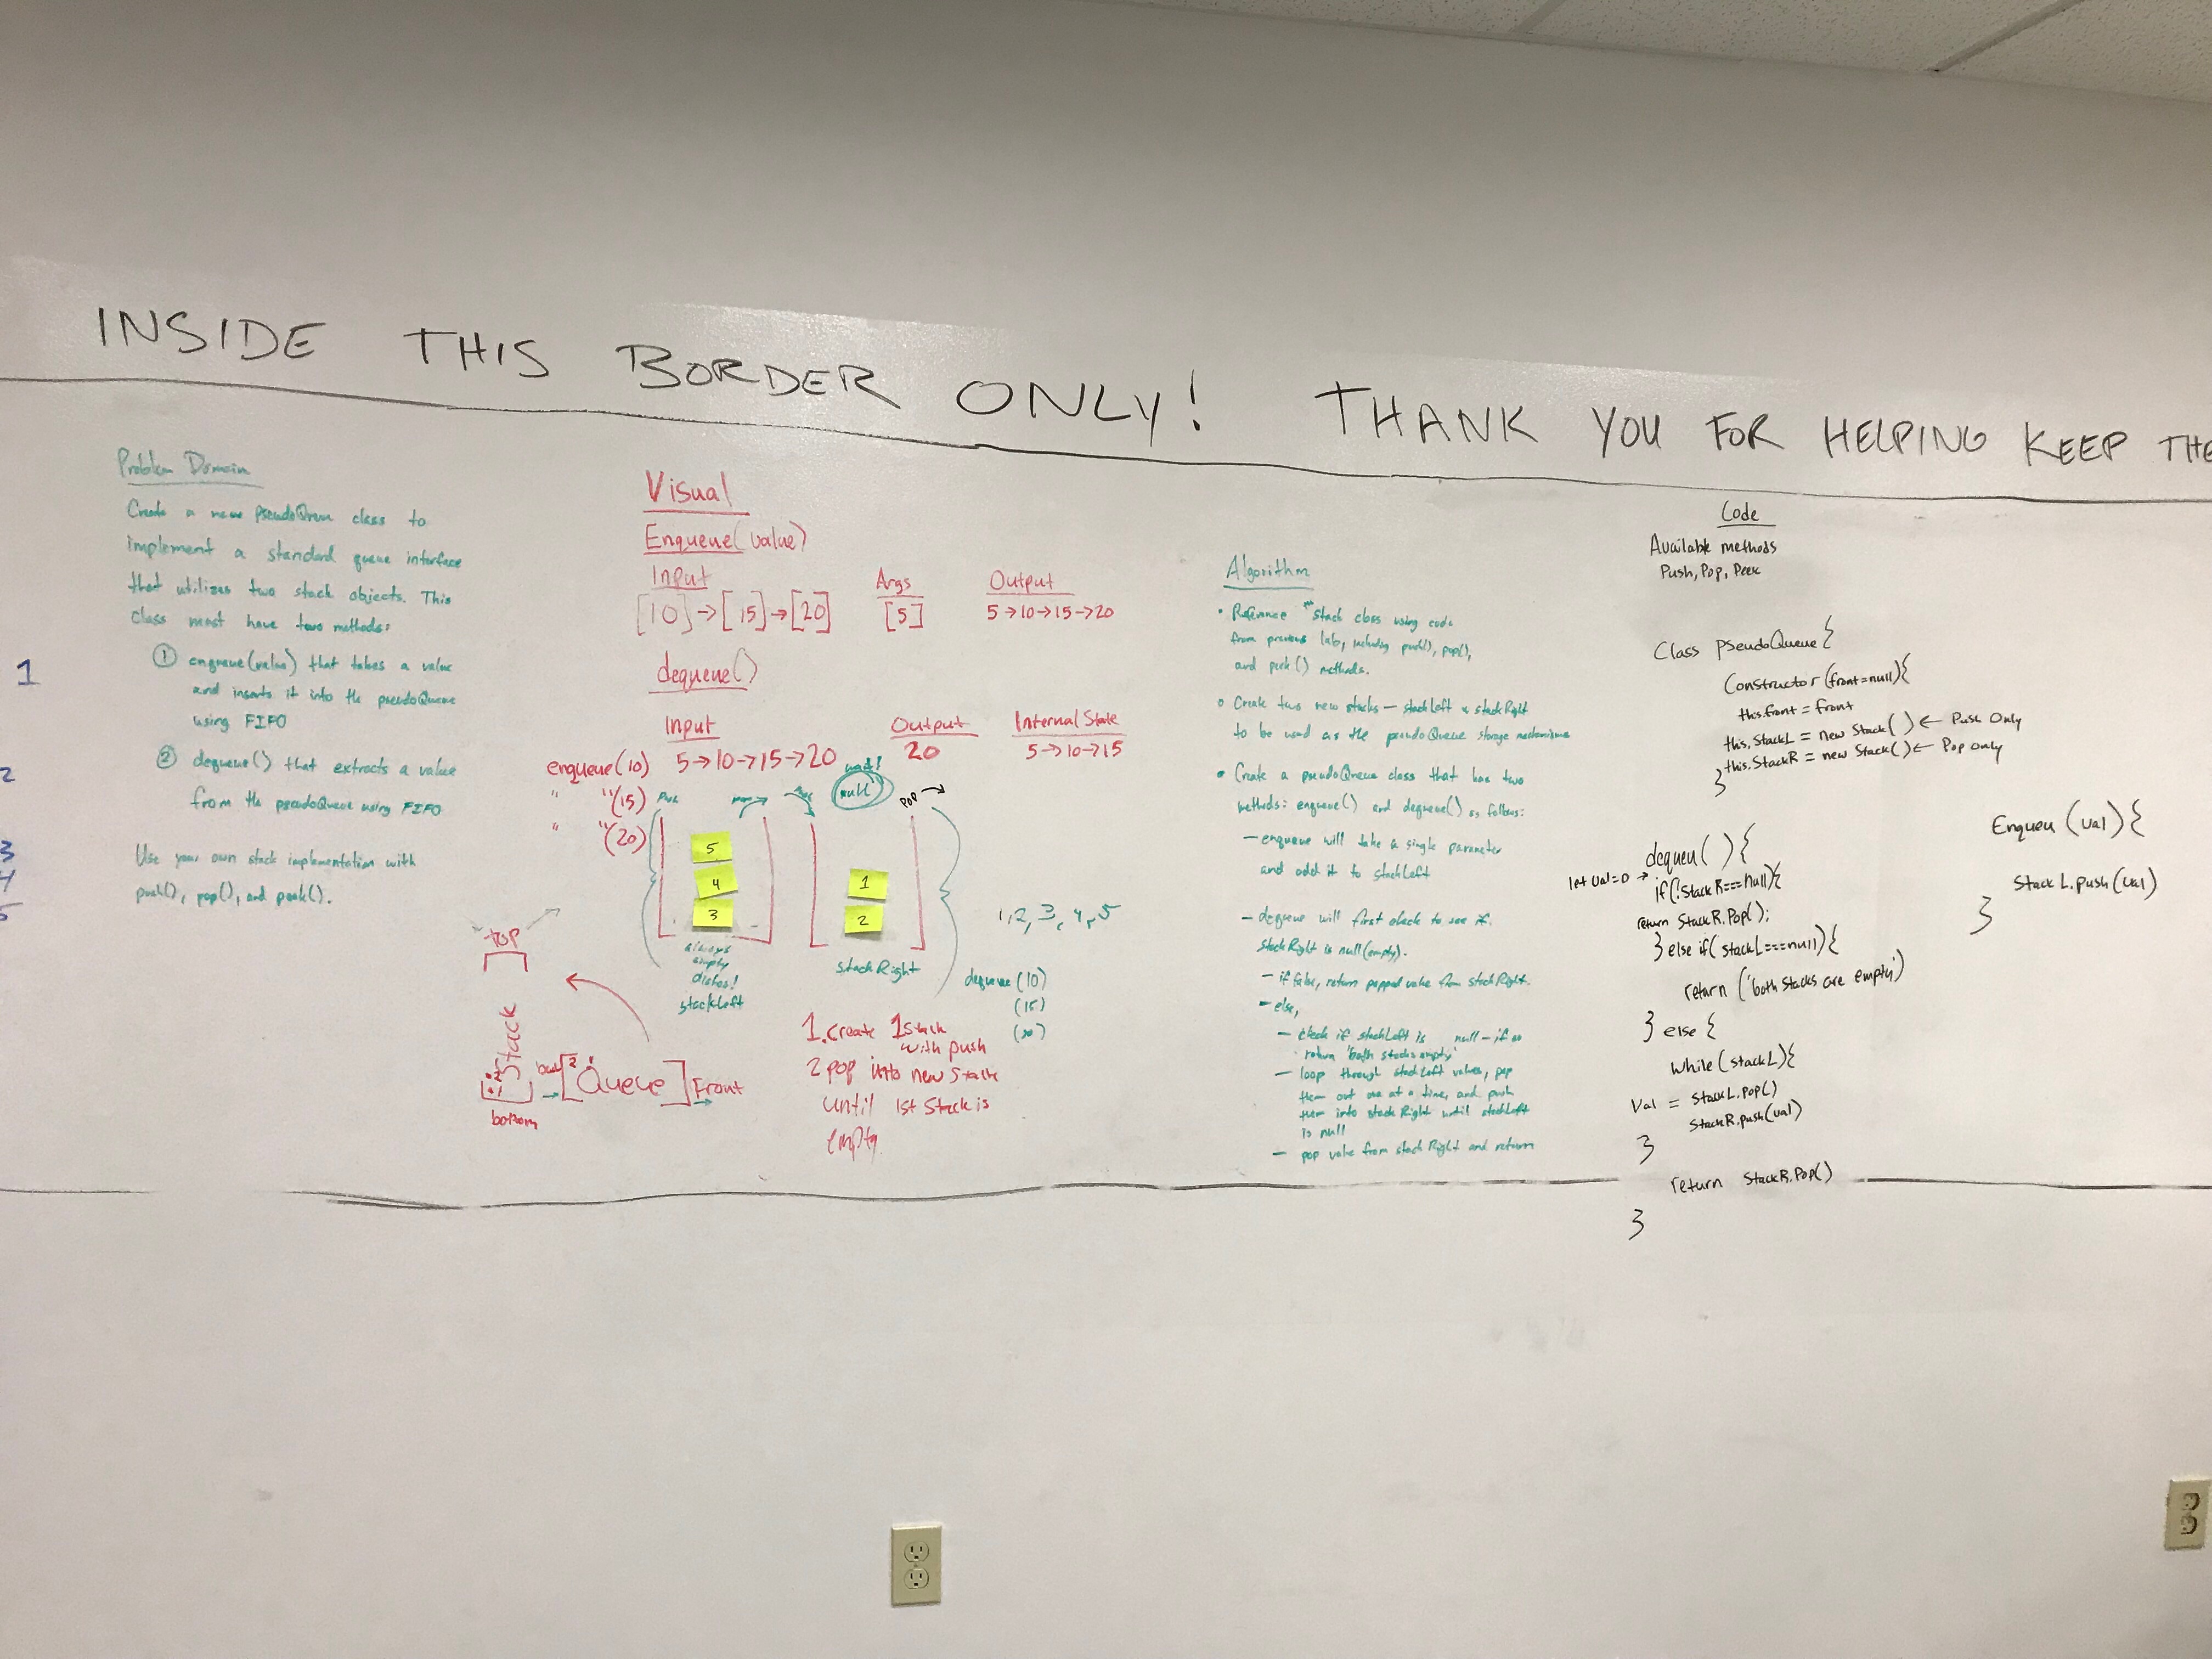 INSIDE THIS BORDER ONLY! THANK YOU FOR HELPING KEEP THE
1
2
3
4
5
Problem Domain
Create a new PseudoQueue class to
implement a standard queue interface
that utilizes two stack objects. This
class must have two methods:
① enqueue(value) that takes a value
and inserts it into the pseudoQueue
using FIFO
② dequeue() that extracts a value
from the pseudoQueue using FIFO
Use your own stack implementation with
push(), pop(), and peek().
Visual
Enqueue(value)
Input Args Output
[10]→[15]→[20] [5] 5→10→15→20
dequeue()
Input Output Internal State
enqueue(10) 5→10→15→20 20 5→10→15
" "(15)
" "(20)
Push
null
POP →
5
4
3
1
2
always
empty
dishes!
stackLeft
stackRight
1,2,3,4,5
dequeue(10)
(15)
(20)
top
Stack
bottom
back [Queue] Front
1. Create 1 Stack
with push
2 pop into new Stack
until 1st Stack is
empty
Algorithm
• Reference Stack class using code
from previous lab, including push(), pop(),
and peek() methods.
• Create two new stacks — stackLeft & stackRight
to be used as the pseudoQueue storage mechanisms
• Create a pseudoQueue class that has two
methods: enqueue() and dequeue() as follows:
— enqueue will take a single parameter
and add it to stackLeft
— dequeue will first check to see if
stackRight is null (empty).
— if false, return popped value from stackRight.
— else,
— check if stackLeft is null — if so
return 'both stacks empty'
— loop through stackLeft values, pop
them out one at a time, and push
them into stackRight until stackLeft
is null
— pop value from stackRight and return
Code
Available methods
Push, Pop, Peek
Class PseudoQueue {
Constructor (front=null){
this.front = front
this.StackL = new Stack() ← Push Only
this.StackR = new Stack() ← Pop only
}
dequeu( ) {
let val=0 →
if(!StackR===null){
return StackR.Pop();
} else if( stackL===null){
return ('both stacks are empty')
} else {
while(stackL){
Val = StackL.Pop()
StackR.push(val)
}
return StackR.Pop()
}
Enqueu (val) {
StackL.push(val)
}